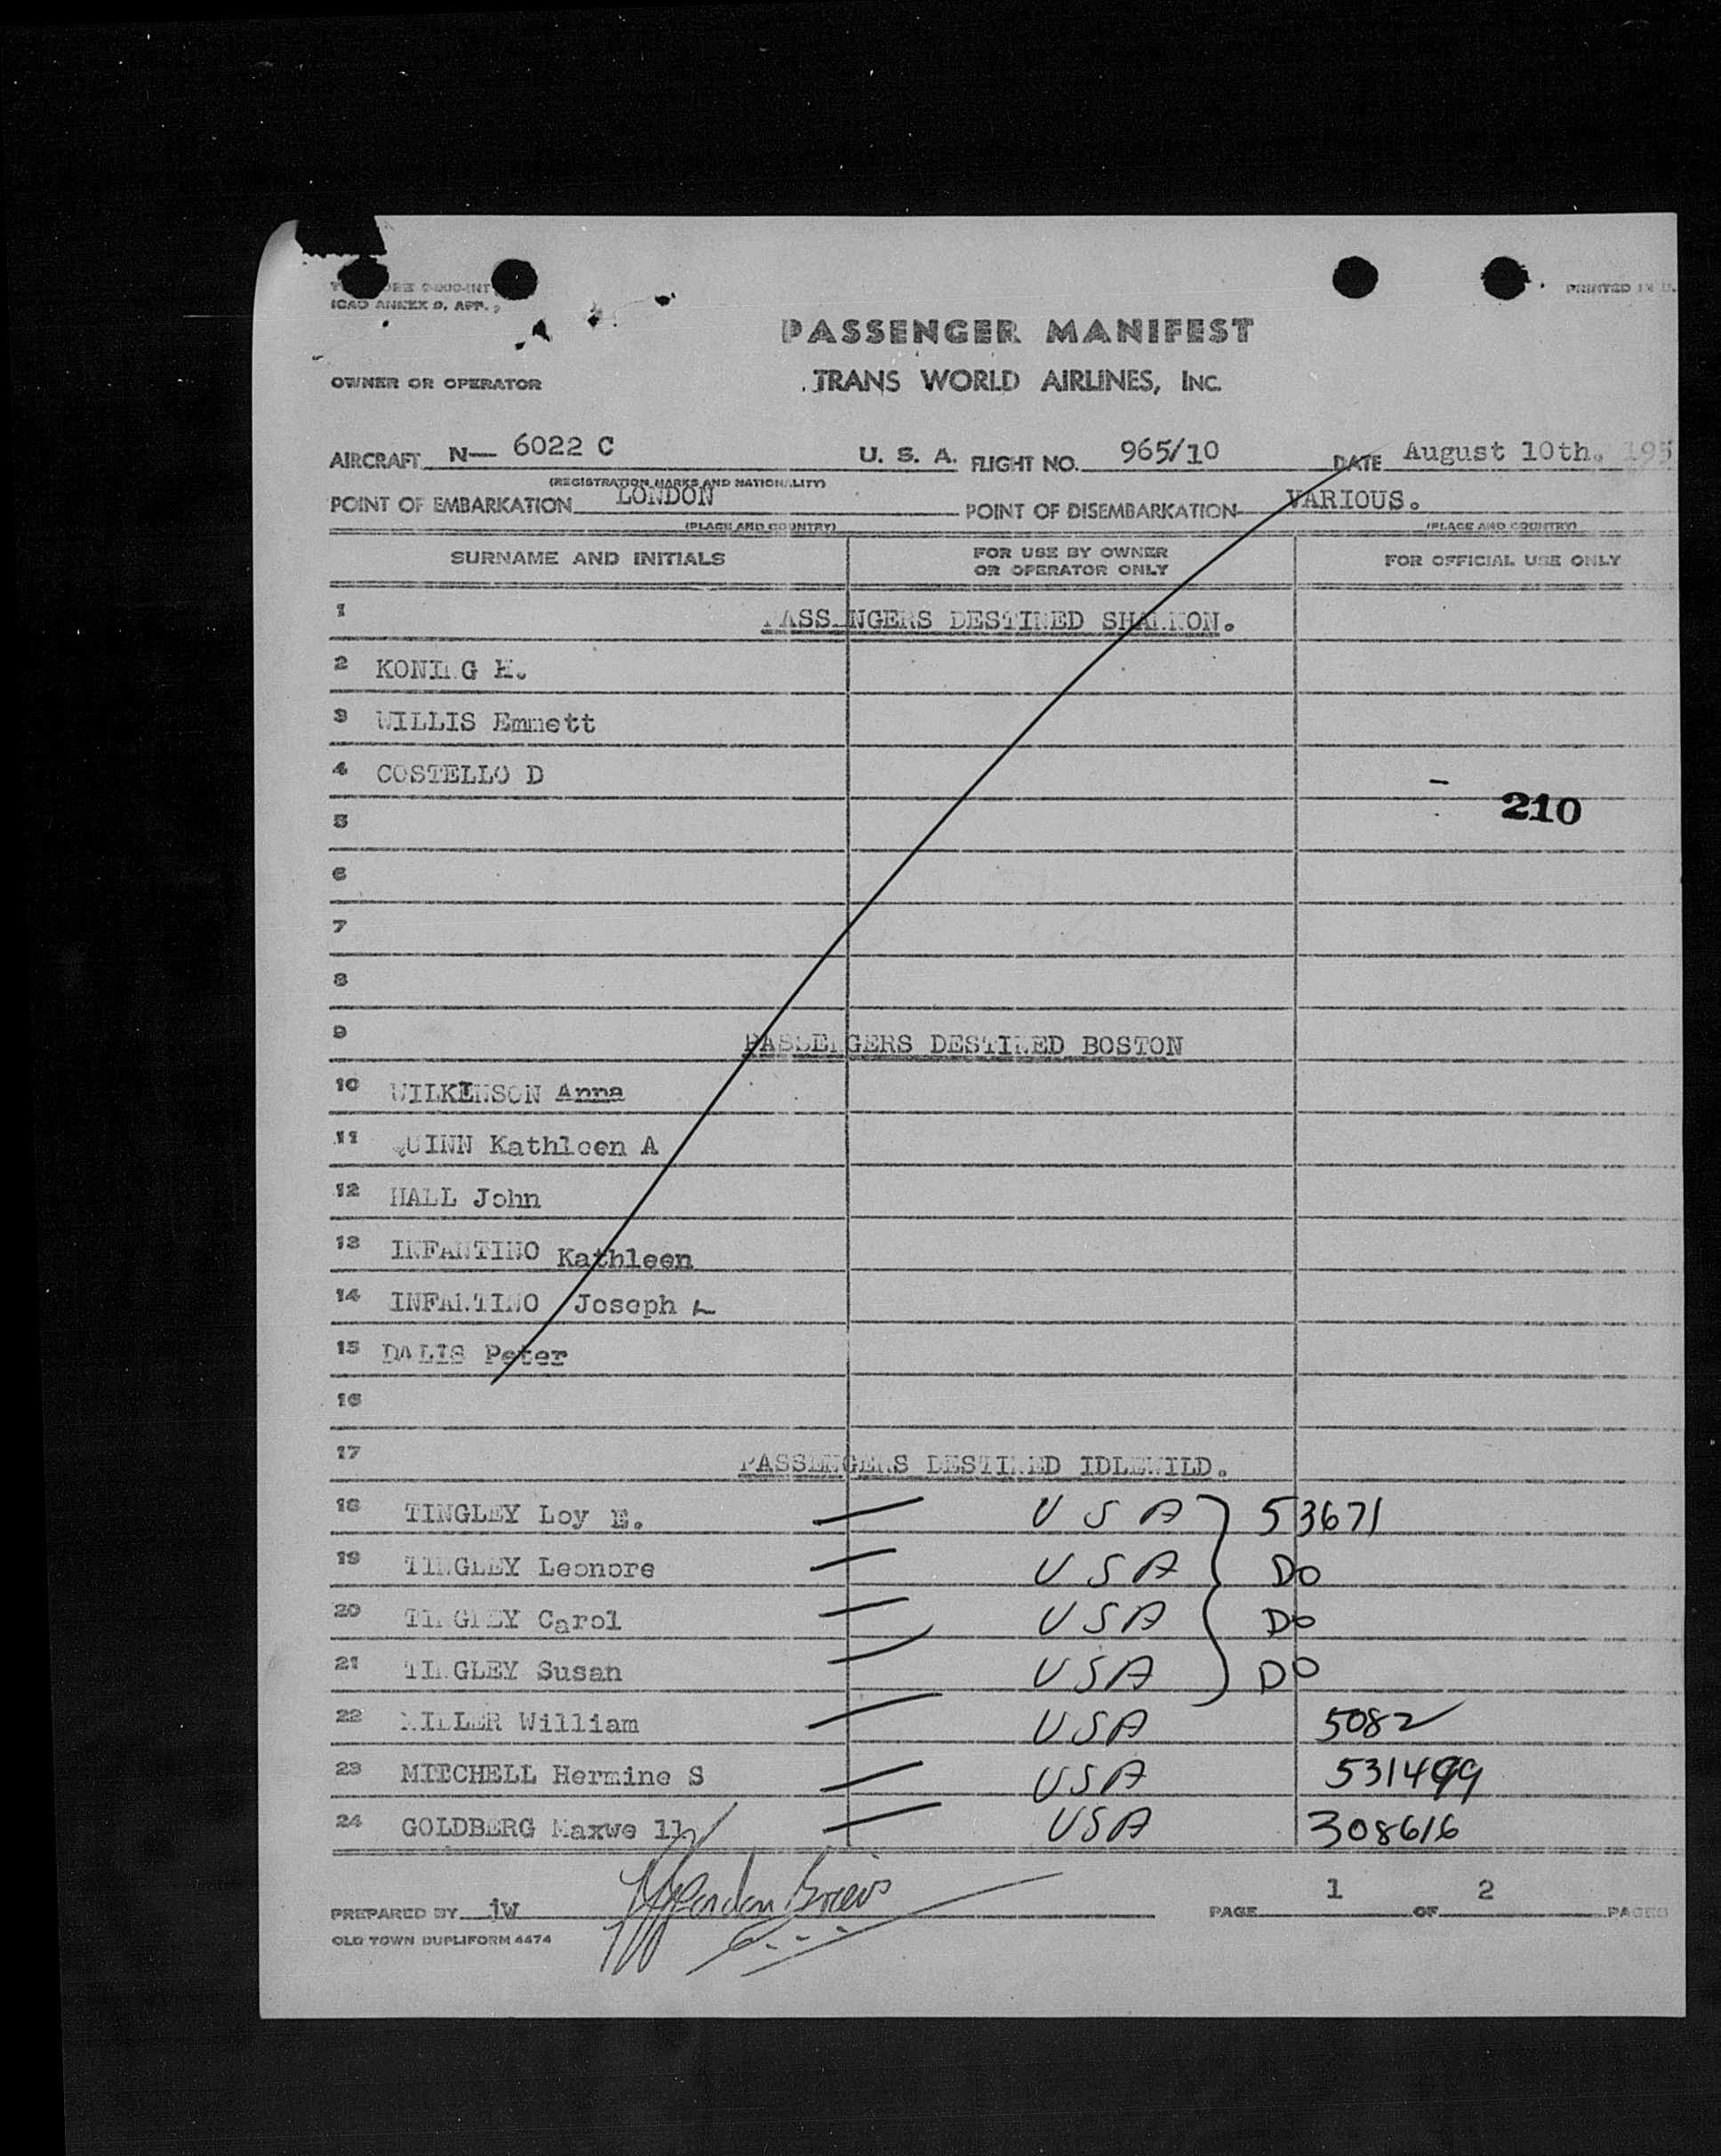 ICAO ANNEX 9, APP.
PRINTED IN U.
PASSENGER MANIFEST
OWNER OR OPERATOR
TRANS WORLD AIRLINES, INC.
AIRCRAFT N— 6022 C U. S. A. FLIGHT NO. 965/10 DATE August 10th. 195
(REGISTRATION MARKS AND NATIONALITY)
POINT OF EMBARKATION LONDON POINT OF DISEMBARKATION VARIOUS.
(PLACE AND COUNTRY) (PLACE AND COUNTRY)
SURNAME AND INITIALS FOR USE BY OWNER OR OPERATOR ONLY FOR OFFICIAL USE ONLY
1 PASSENGERS DESTINED SHANNON.
2 KONING H.
3 WILLIS Emmett
4 COSTELLO D
210
5
6
7
8
9 PASSENGERS DESTINED BOSTON
10 WILKINSON Anna
11 QUINN Kathleen A
12 HALL John
13 INFANTINO Kathleen
14 INFANTINO Joseph
15 DALIS Peter
16
17 PASSENGERS DESTINED IDLEWILD.
18 TINGLEY Loy E. — USA 53671
19 TINGLEY Leonore — USA DO
20 TINGLEY Carol — USA DO
21 TINGLEY Susan — USA DO
22 MILLER William — USA 5082
23 MITCHELL Hermine S — USA 531499
24 GOLDBERG Maxwe 11 — USA 308616
PREPARED BY jw PAGE 1 OF 2 PAGES
OLD TOWN DUPLIFORM 4474